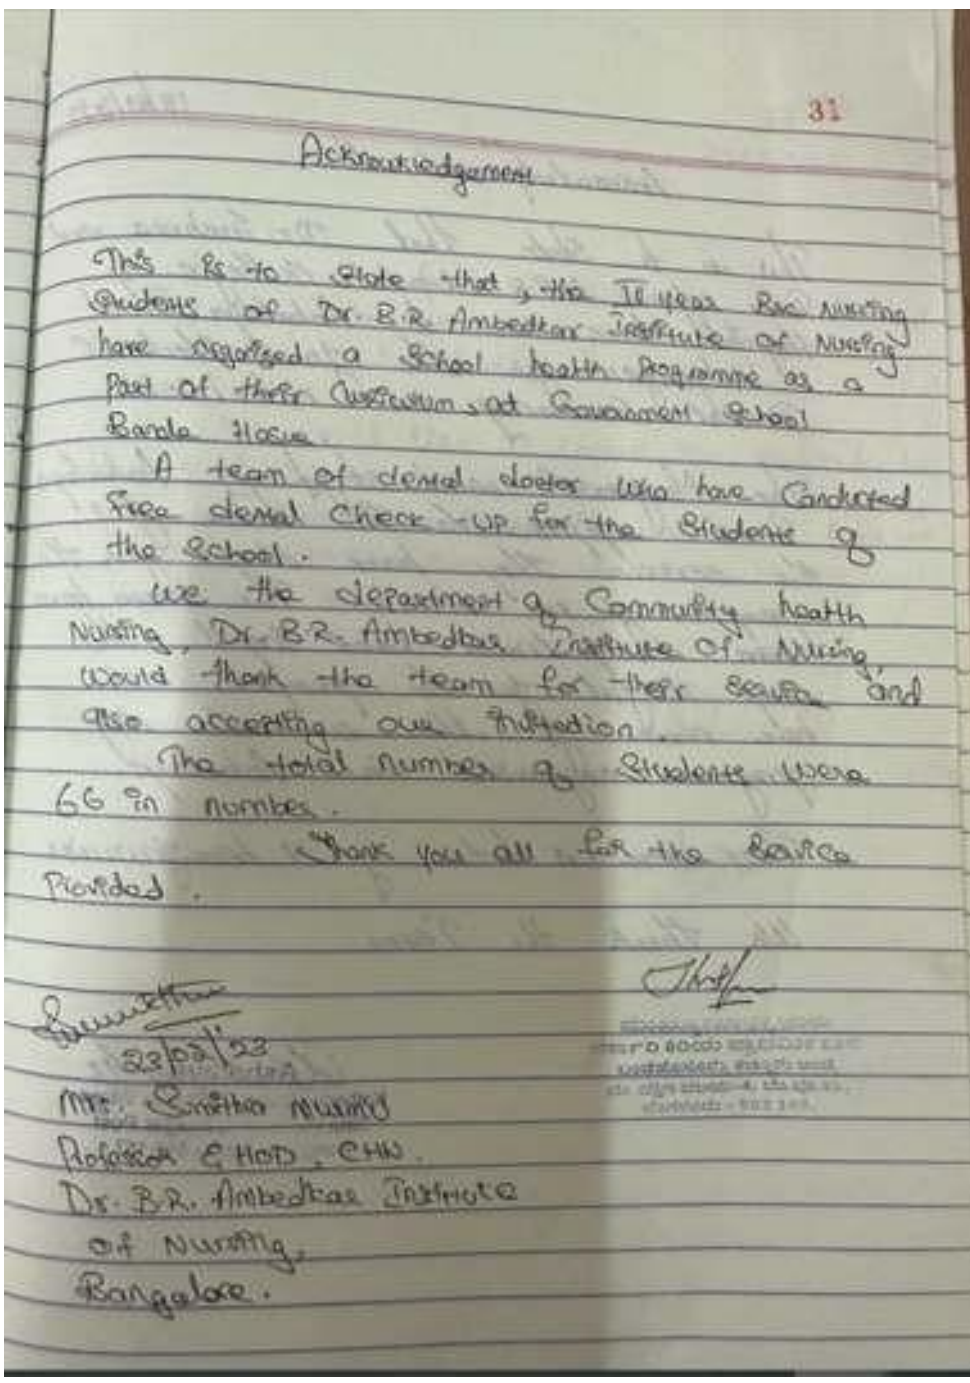 31
Acknowledgement
This is to state that, the II year Bsc Nursing
Students of Dr. B.R. Ambedkar Institute of Nursing
have organised a School health Programme as a
Part of their Curriculum, at Government School
Bande Hosur
A team of dental doctor who have Conducted
free dental Check-up for the Students of
the School.
we the department of Community health
Nursing, Dr. B.R. Ambedkar Institute of Nursing,
would thank the team for their Service and
also accepting our invitation.
The total number of Students were
66 in number.
Thank you all for the Service
Provided.
23/02/'23
Mrs. Sunitha
Professor & HOD, CHN.
Dr. B.R. Ambedkar Institute
of Nursing,
Bangalore.